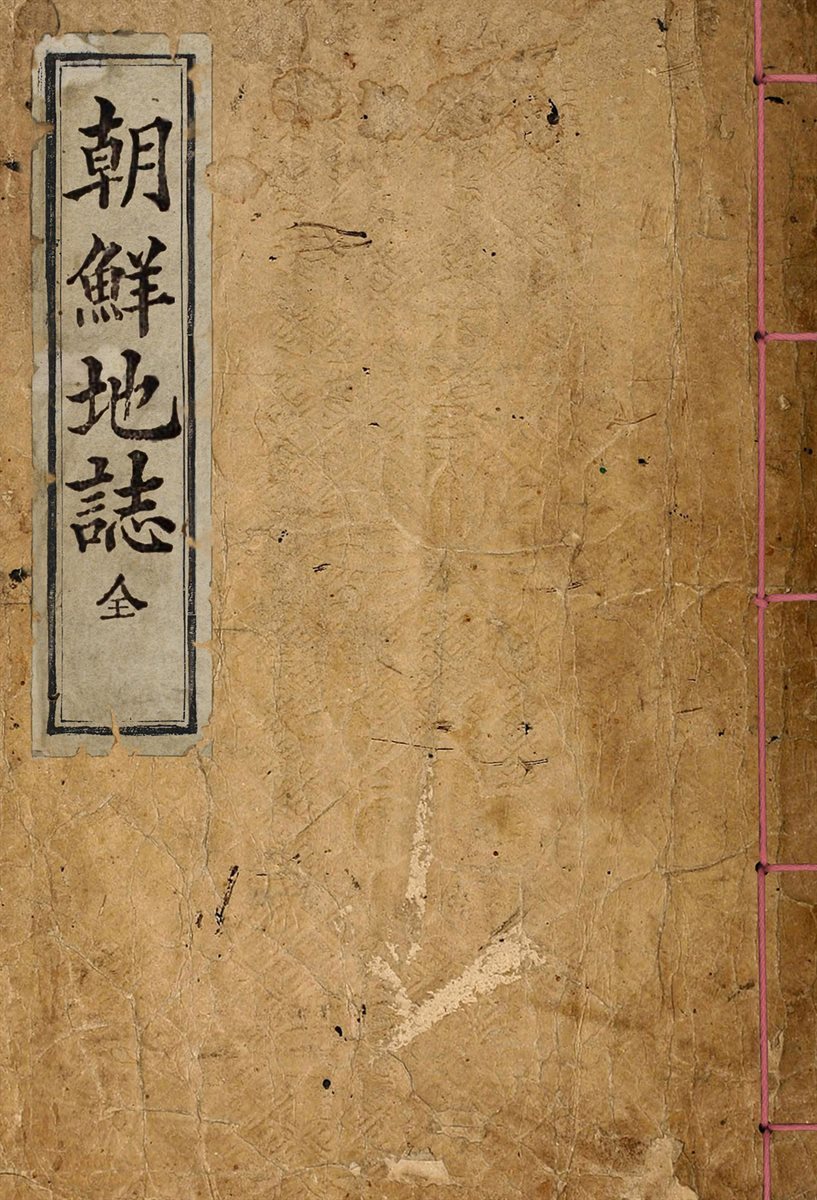 朝鮮地誌 全